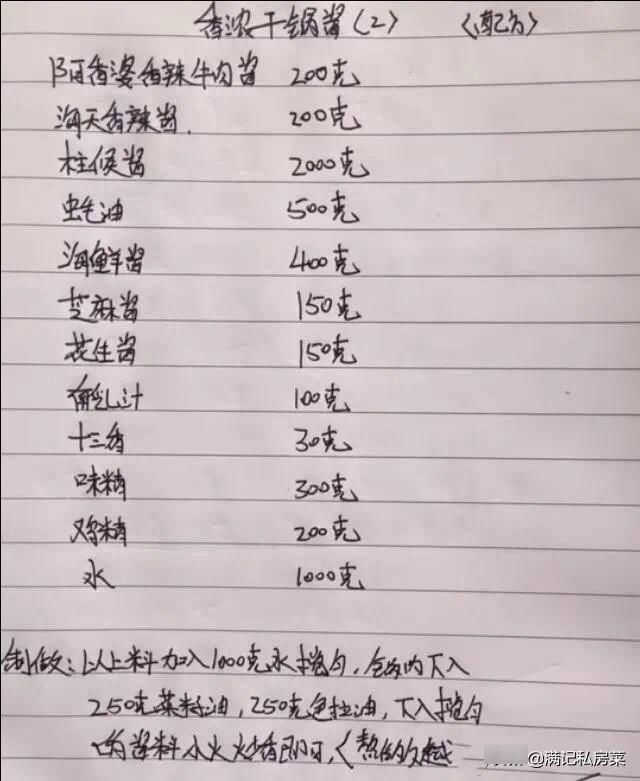 香浓干锅酱(2) 〈配方〉
阿香婆香辣牛肉酱 200克
海天香辣酱. 200克
柱候酱 2000克
蚝油 500克
海鲜酱 400克
芝麻酱 150克
花生酱 150克
腐乳汁 100克
十三香 30克
味精 300克
鸡精 200克
水 1000克
制做:以上料加入1000克水搅匀,锅内下入
250克菜籽油,250克色拉油,下入搅匀
的酱料小火炒香即可,〈熬的
@满记私房菜